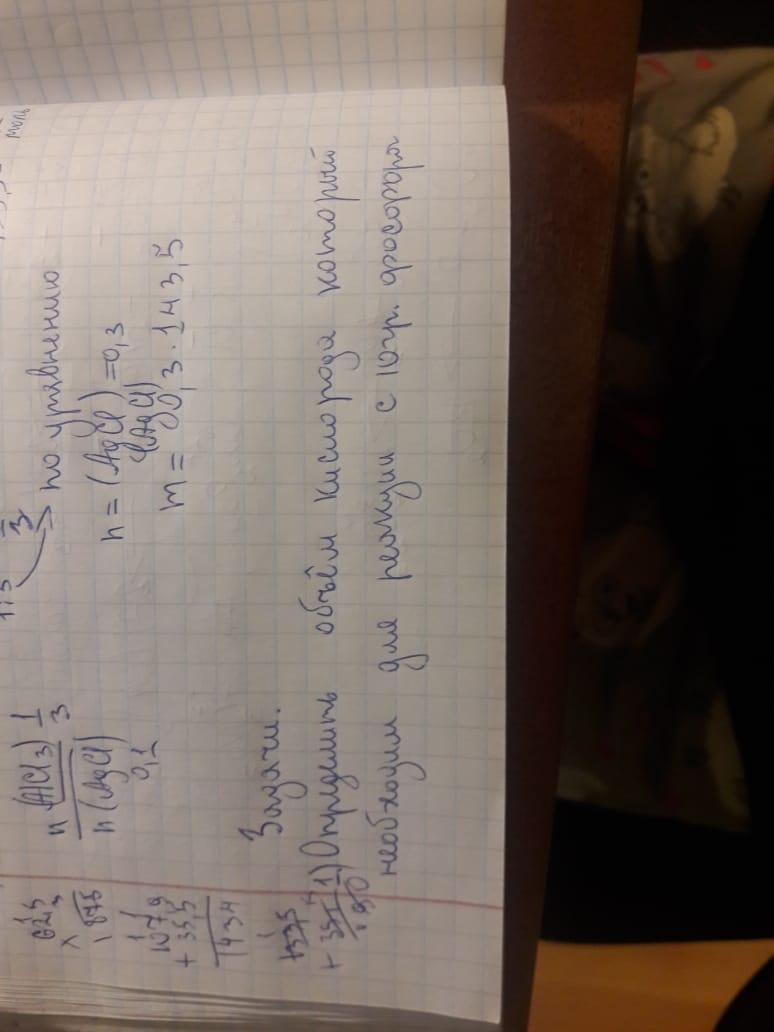 моль
1:3
3
n(AlCl3) 1
n(AgCl) 3
0,1
по уравнению
n = (AgCl) = 0,3
(AgCl)
m = 0,3 · 143,5
× 3
1875
107,9
+ 35,5
1434
Задачи.
1) Определить объём кислорода который
необходим для реакции с 10гр. фосфора